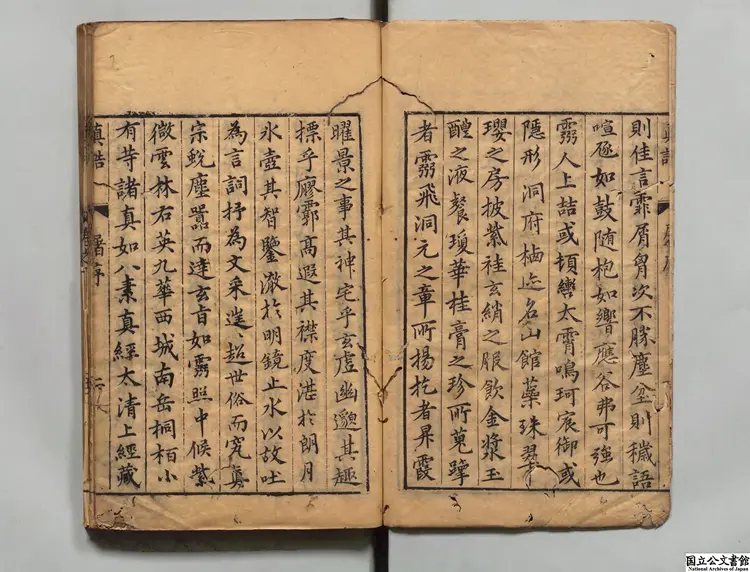 則佳言霏屑胷次不勝塵坌則穢語
喧豗如鼓随枹如響應谷弗可強也
靈人上喆或頓轡太霄鳴珂宸御或
隱形洞府栖迹名山館蘂珠翠
瓔之房披紫袿玄綃之服飲金漿玉
醴之液餐瓊華桂膏之珍所蒐撢
者靈飛洞元之章所揚扢者昇霞
真誥
曜景之事其神宅乎玄虛幽邈其趣
摽乎廖霩高遐其襟度湛於朗月
氷壺其智鑒澈於明鏡止水以故吐
為言詞抒為文采迣超世俗而究真
宗蛻塵嚣而達玄旨如靈照中候紫
微雲林右英九華西城南岳桐栢小
有等諸真如八素真經太清上經藏
真誥
屠序
六
国立公文書館
National Archives of Japan